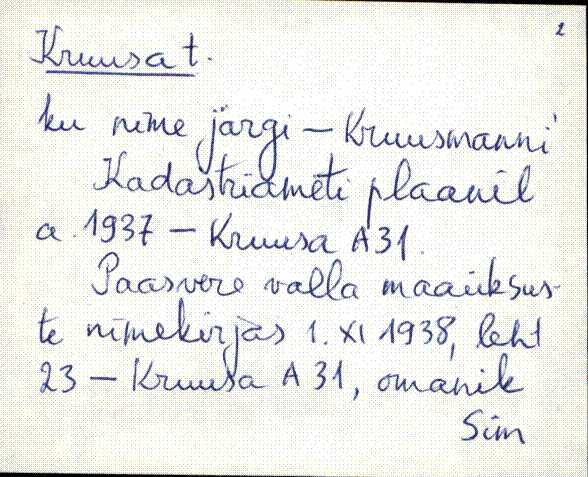 2
Kruusa t.
ku nime järgi – Kruusmanni
Kadastriameti plaanil
a. 1937 – Kruusa A 31.
Paasvere valla maaüksus-
te nimekirjas 1. XI 1938, leht
23 – Kruusa A 31, omanik
Sim